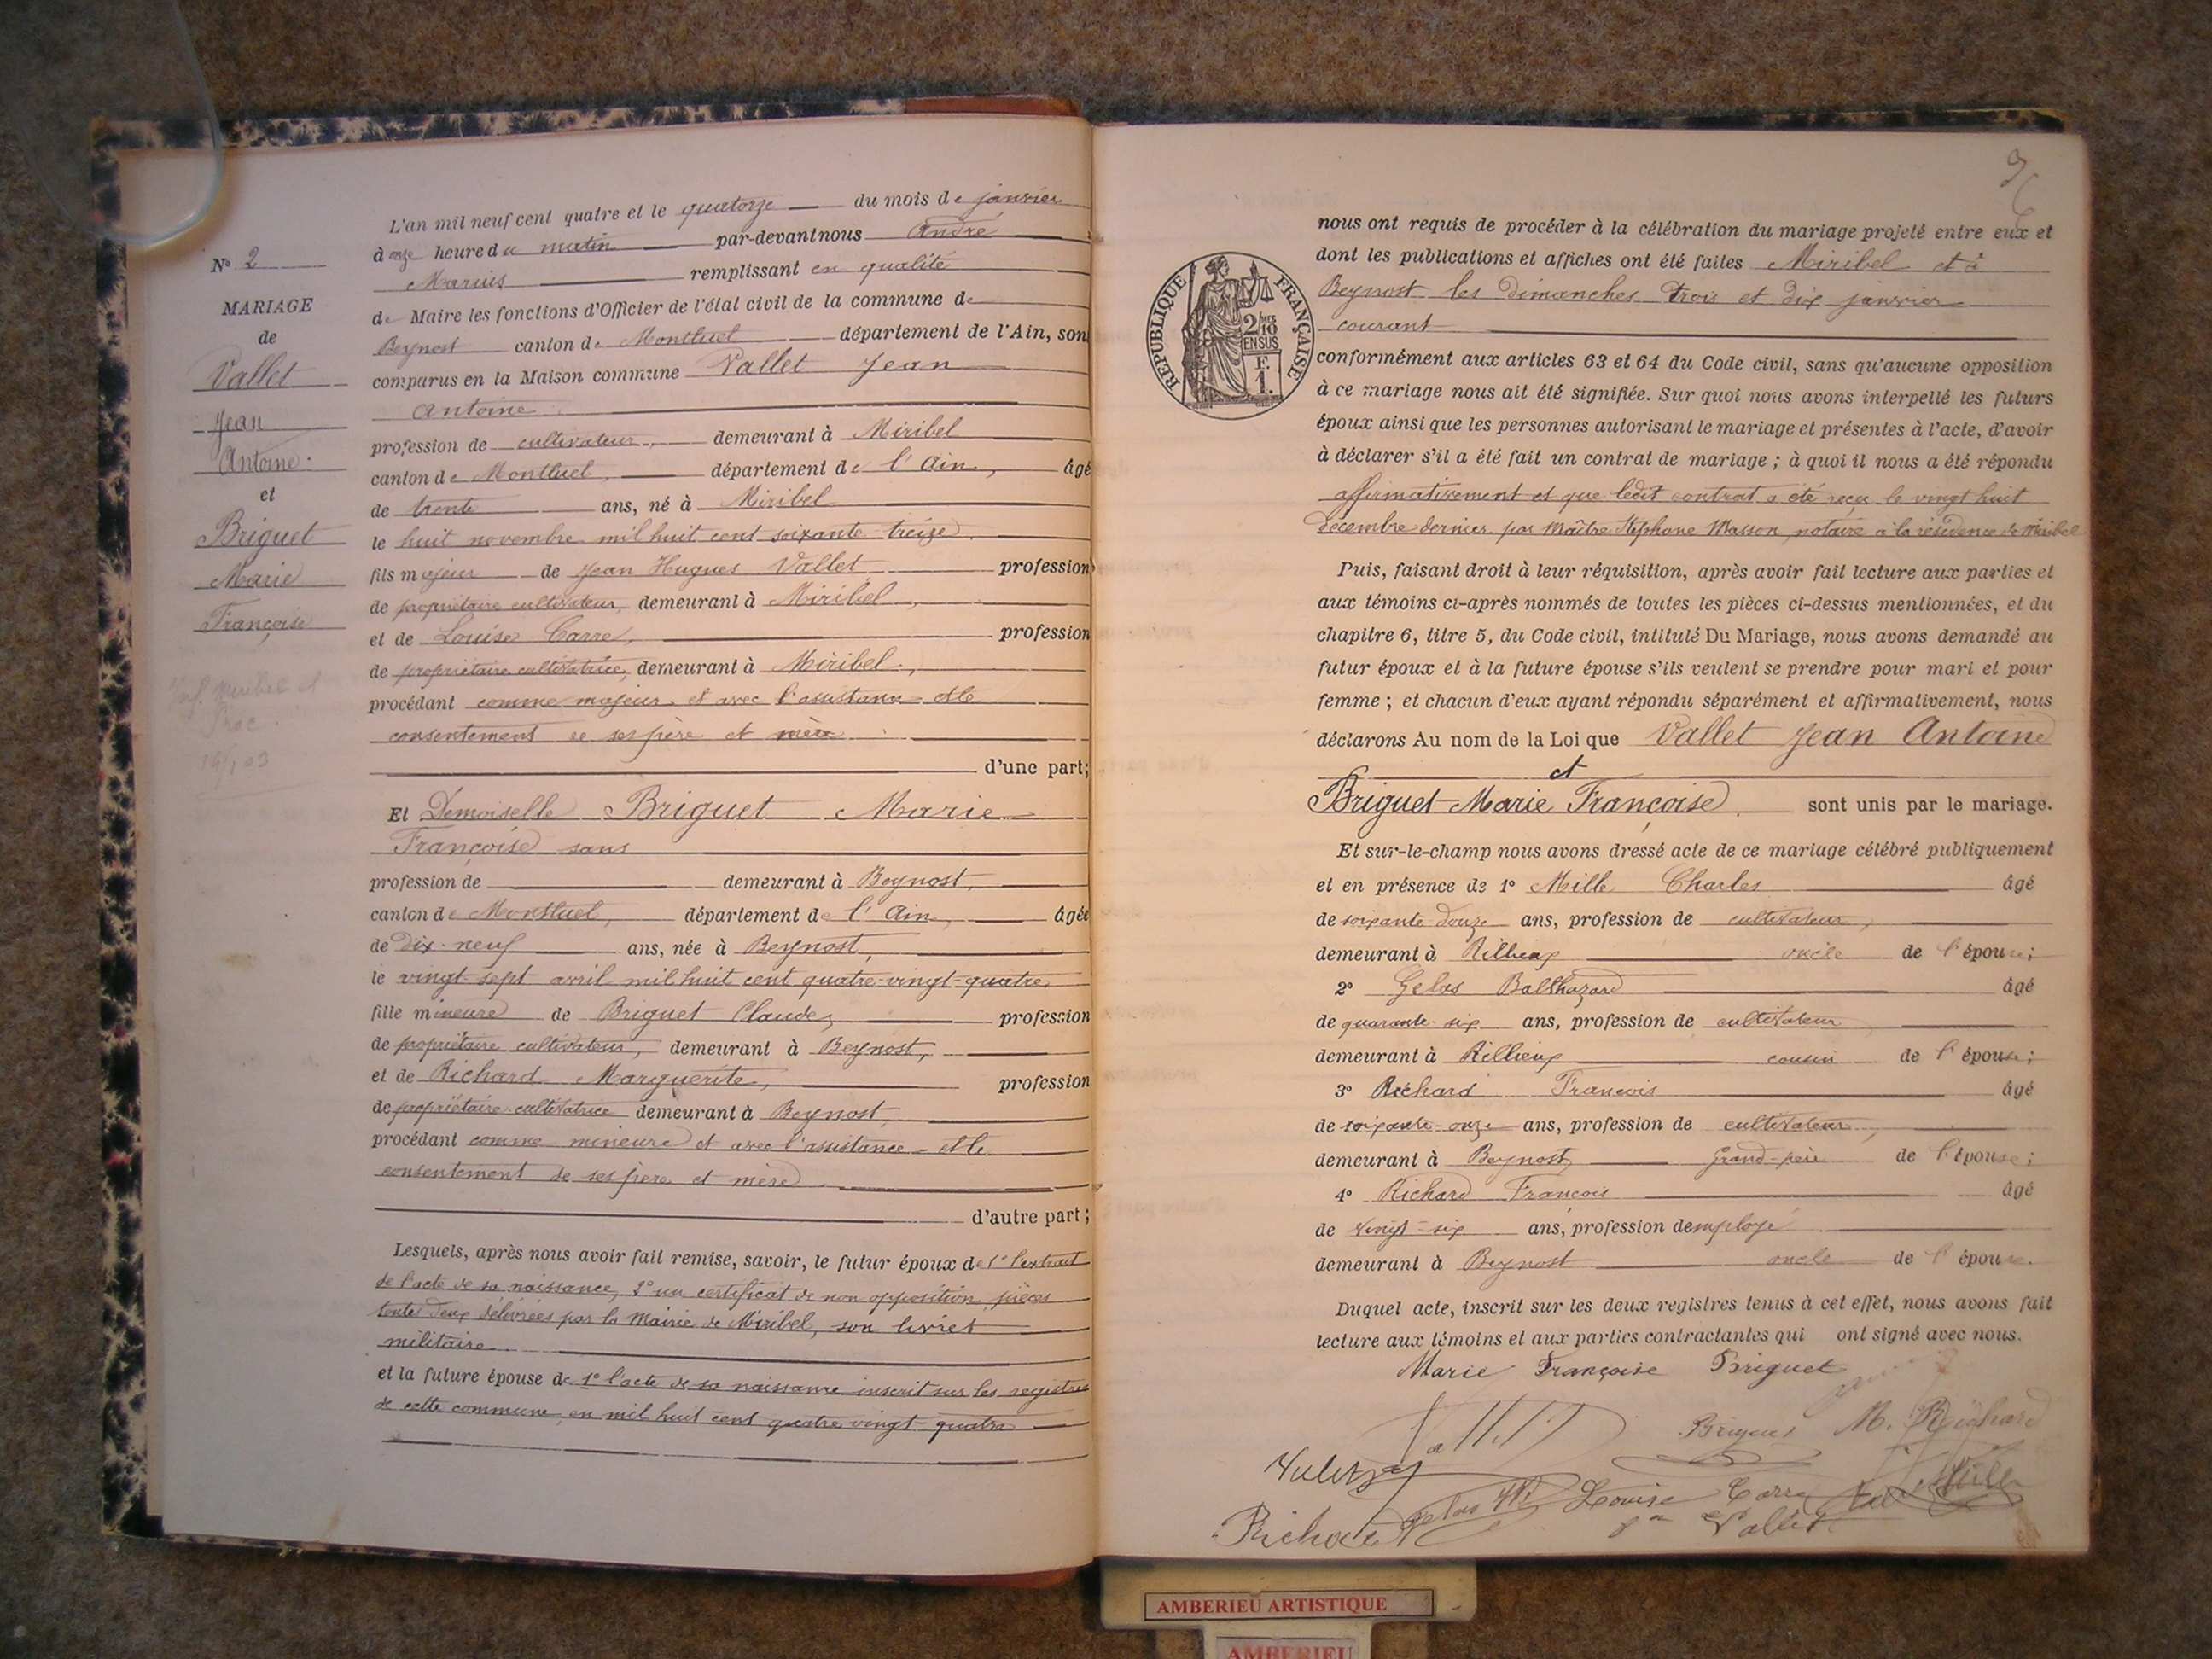 N° 2
MARIAGE
de
Vallet
Jean
Antoine
et
Briguet
Marie
Françoise
L'an mil neuf cent quatre et le quatorze du mois de janvier
à onze heure du matin par-devant nous André
Marius remplissant en qualité
de Maire les fonctions d'Officier de l'état civil de la commune de
Beynost canton de Montluel département de l'Ain, son
comparus en la Maison commune Vallet Jean
Antoine
profession de cultivateur, demeurant à Miribel
canton de Montluel, département de l'Ain, âgé
de trente ans, né à Miribel
le huit novembre mil huit cent soixante treize
fils majeur de Jean Hugues Vallet profession
de propriétaire cultivateur, demeurant à Miribel,
et de Louise Carre, profession
de propriétaire cultivatrice, demeurant à Miribel,
procédant comme majeur et avec l'assistance et le
consentement de ses père et mère
d'une part;
Et Demoiselle Briguet Marie
Françoise sans
profession de demeurant à Beynost,
canton de Montluel, département de l'Ain, âgée
de dix-neuf ans, née à Beynost,
le vingt-sept avril mil huit cent quatre-vingt-quatre,
fille mineure de Briguet Claude, profession
de propriétaire cultivateur, demeurant à Beynost,
et de Richard Marguerite, profession
de propriétaire cultivatrice demeurant à Beynost,
procédant comme mineure et avec l'assistance et le
consentement de ses père et mère
d'autre part;
Lesquels, après nous avoir fait remise, savoir, le futur époux de 1° l'extrait
de l'acte de sa naissance, 2° un certificat de non opposition, pièces
toutes deux délivrées par la Mairie de Miribel, son livret
militaire
et la future épouse de 1° l'acte de sa naissance inscrit sur les registres
de cette commune, en mil huit cent quatre vingt quatre
nous ont requis de procéder à la célébration du mariage projeté entre eux et
dont les publications et affiches ont été faites Miribel et à
Beynost les dimanches trois et dix janvier
courant
RÉPUBLIQUE FRANÇAISE
2/10
EN SUS
F.
1.
conformément aux articles 63 et 64 du Code civil, sans qu'aucune opposition
à ce mariage nous ait été signifiée. Sur quoi nous avons interpellé les futurs
époux ainsi que les personnes autorisant le mariage et présentes à l'acte, d'avoir
à déclarer s'il a été fait un contrat de mariage ; à quoi il nous a été répondu
affirmativement et que ledit contrat a été reçu le vingt huit
décembre dernier par Maître Stéphane Masson, notaire à la résidence de Miribel
Puis, faisant droit à leur réquisition, après avoir fait lecture aux parties et
aux témoins ci-après nommés de toutes les pièces ci-dessus mentionnées, et du
chapitre 6, titre 5, du Code civil, intitulé Du Mariage, nous avons demandé au
futur époux et à la future épouse s'ils veulent se prendre pour mari et pour
femme ; et chacun d'eux ayant répondu séparément et affirmativement, nous
déclarons Au nom de la Loi que Vallet Jean Antoine
et
Briguet Marie Françoise sont unis par le mariage.
Et sur-le-champ nous avons dressé acte de ce mariage célébré publiquement
et en présence de 1° Mille Charles âgé
de soixante douze ans, profession de cultivateur,
demeurant à Rillieux oncle de l'épouse;
2° Gelas Balthazard âgé
de quarante-six ans, profession de cultivateur
demeurant à Rillieux cousin de l'épouse;
3° Richard Francois âgé
de soixante-onze ans, profession de cultivateur,
demeurant à Beynost, Grand-père de l'épouse;
4° Richard François âgé
de vingt-six ans, profession d'employé
demeurant à Beynost oncle de l'épouse.
Duquel acte, inscrit sur les deux registres tenus à cet effet, nous avons fait
lecture aux témoins et aux parties contractantes qui ont signé avec nous.
Marie Françoise Briguet
Vallet Briguet M. Richard
Louise Carre
Richard Vallet
AMBERIEU ARTISTIQUE
AMBERIEU